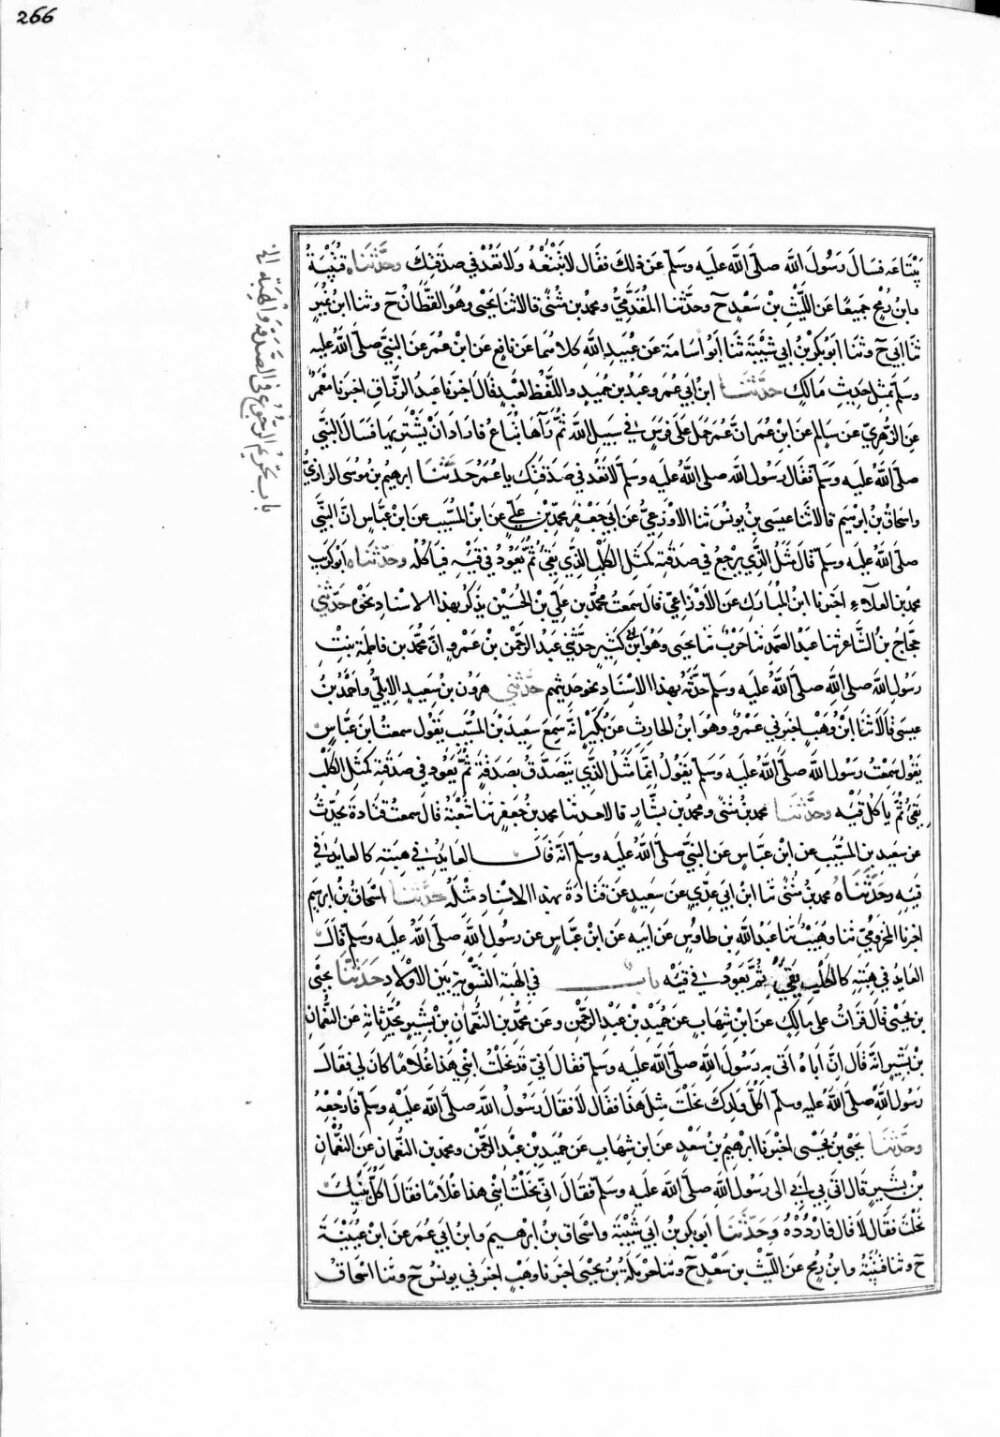 266
باب تحريم الرجوع في الصدقة والهبة الخ
يبتاعه فسال رسول الله صلى الله عليه وسلم عن ذلك فقال لا تبتعه ولا تعد في صدقتك وحدثناه قتيبة
وابن رمح جميعا عن الليث بن سعد ح وحدثنا المقدمي ومحمد بن مثنى قالا ثنا يحيى وهو القطان ح وثنا ابن نمير
ثنا ابي ح وثنا ابو بكر بن ابي شيبة ثنا ابو اسامة عن عبيد الله كلاهما عن نافع عن ابن عمر عن النبي صلى الله عليه
وسلم بمثل حديث مالك حدثنا ابن ابي عمر وعبد بن حميد واللفظ لعبد قال اخبرنا عبد الرزاق اخبرنا معمر
عن الزهري عن سالم عن ابن عمر ان عمر حمل على فرس في سبيل الله ثم رآها تباع فاراد ان يشتريها فسال النبي
صلى الله عليه وسلم فقال رسول الله صلى الله عليه وسلم لا تعد في صدقتك يا عمر حدثنا ابرهيم بن موسى الرازي
واسحاق بن ابرهيم قالا ثنا عيسى بن يونس ثنا الاوزعي عن ابي جعفر محمد بن علي عن ابن المسيب عن ابن عباس ان النبي
صلى الله عليه وسلم قال مثل الذي يرجع في صدقته كمثل الكلب الذي يقئ ثم يعود في قيه فياكله وحدثناه ابو كريب
محمد بن العلاء اخبرنا ابن المبارك عن الاوزاعي قال سمعت محمد بن علي بن الحسين يذكر بهذا الاسناد نحوه حدثني
حجاج بن الشاعر ثنا عبد الصمد ثنا حرب ثنا يحيى وهو ابن ابي كثير حدثني عبد الرحمن بن عمرو ان محمد بن فاطمة بنت
رسول الله صلى الله عليه وسلم حدثه بهذا الاسناد نحو حديثهم حدثني هرون بن سعيد الايلي واحمد بن
عيسى قالا ثنا ابن وهب اخبرني عمرو وهو ابن الحارث عن بكير انه سمع سعيد بن المسيب يقول سمعت ابن عباس
يقول سمعت رسول الله صلى الله عليه وسلم يقول انما مثل الذي يتصدق بصدقة ثم يعود في صدقته كمثل الكلب
يقئ ثم ياكل قيه وحدثنا محمد بن مثنى ومحمد بن بشار قالا حدثنا محمد بن جعفر ثنا شعبة قال سمعت قتادة يحدث
عن سعيد بن المسيب عن ابن عباس عن النبي صلى الله عليه وسلم انه قال العايد في هبته كالعايد في
قيه وحدثناه محمد بن مثنى ثنا ابن ابي عدي عن سعيد عن قتادة بهذا الاسناد مثله حدثنا اسحاق بن ابرهيم
اخبرنا المخزومي ثنا وهيب ثنا عبد الله بن طاوس عن ابيه عن ابن عباس عن رسول الله صلى الله عليه وسلم قال
العايد في هبته كالكلب يقئ ثم يعود في قيه باب في الهبة التسوية بين الاولاد حدثنا يحيى
بن يحيى قال قرات على مالك عن ابن شهاب عن حميد بن عبد الرحمن وعن محمد بن النعمان بن بشير يحدثانه عن النعمان
بن بشير انه قال ان اباه اتى به رسول الله صلى الله عليه وسلم فقال اني قد نحلت ابني هذا غلاما كان لي فقال
رسول الله صلى الله عليه وسلم اكل ولدك نحلت مثل هذا فقال لا فقال رسول الله صلى الله عليه وسلم فارجعه
وحدثنا يحيى بن يحيى اخبرنا ابرهيم بن سعد عن ابن شهاب عن حميد بن عبد الرحمن ومحمد بن النعمان عن النعمان
بن بشير قال اتى بي ابي الى رسول الله صلى الله عليه وسلم فقال اني نحلت ابني هذا غلاما فقال اكل بنيك
نحلت فقال لا قال فاردده وحدثنا ابو بكر بن ابي شيبة واسحاق بن ابرهيم وابن ابي عمر عن ابن عيينة
ح وثنا قتيبة وابن رمح عن الليث بن سعد ح وثنا حرملة بن يحيى اخبرنا وهب اخبرني يونس ح وثنا اسحاق